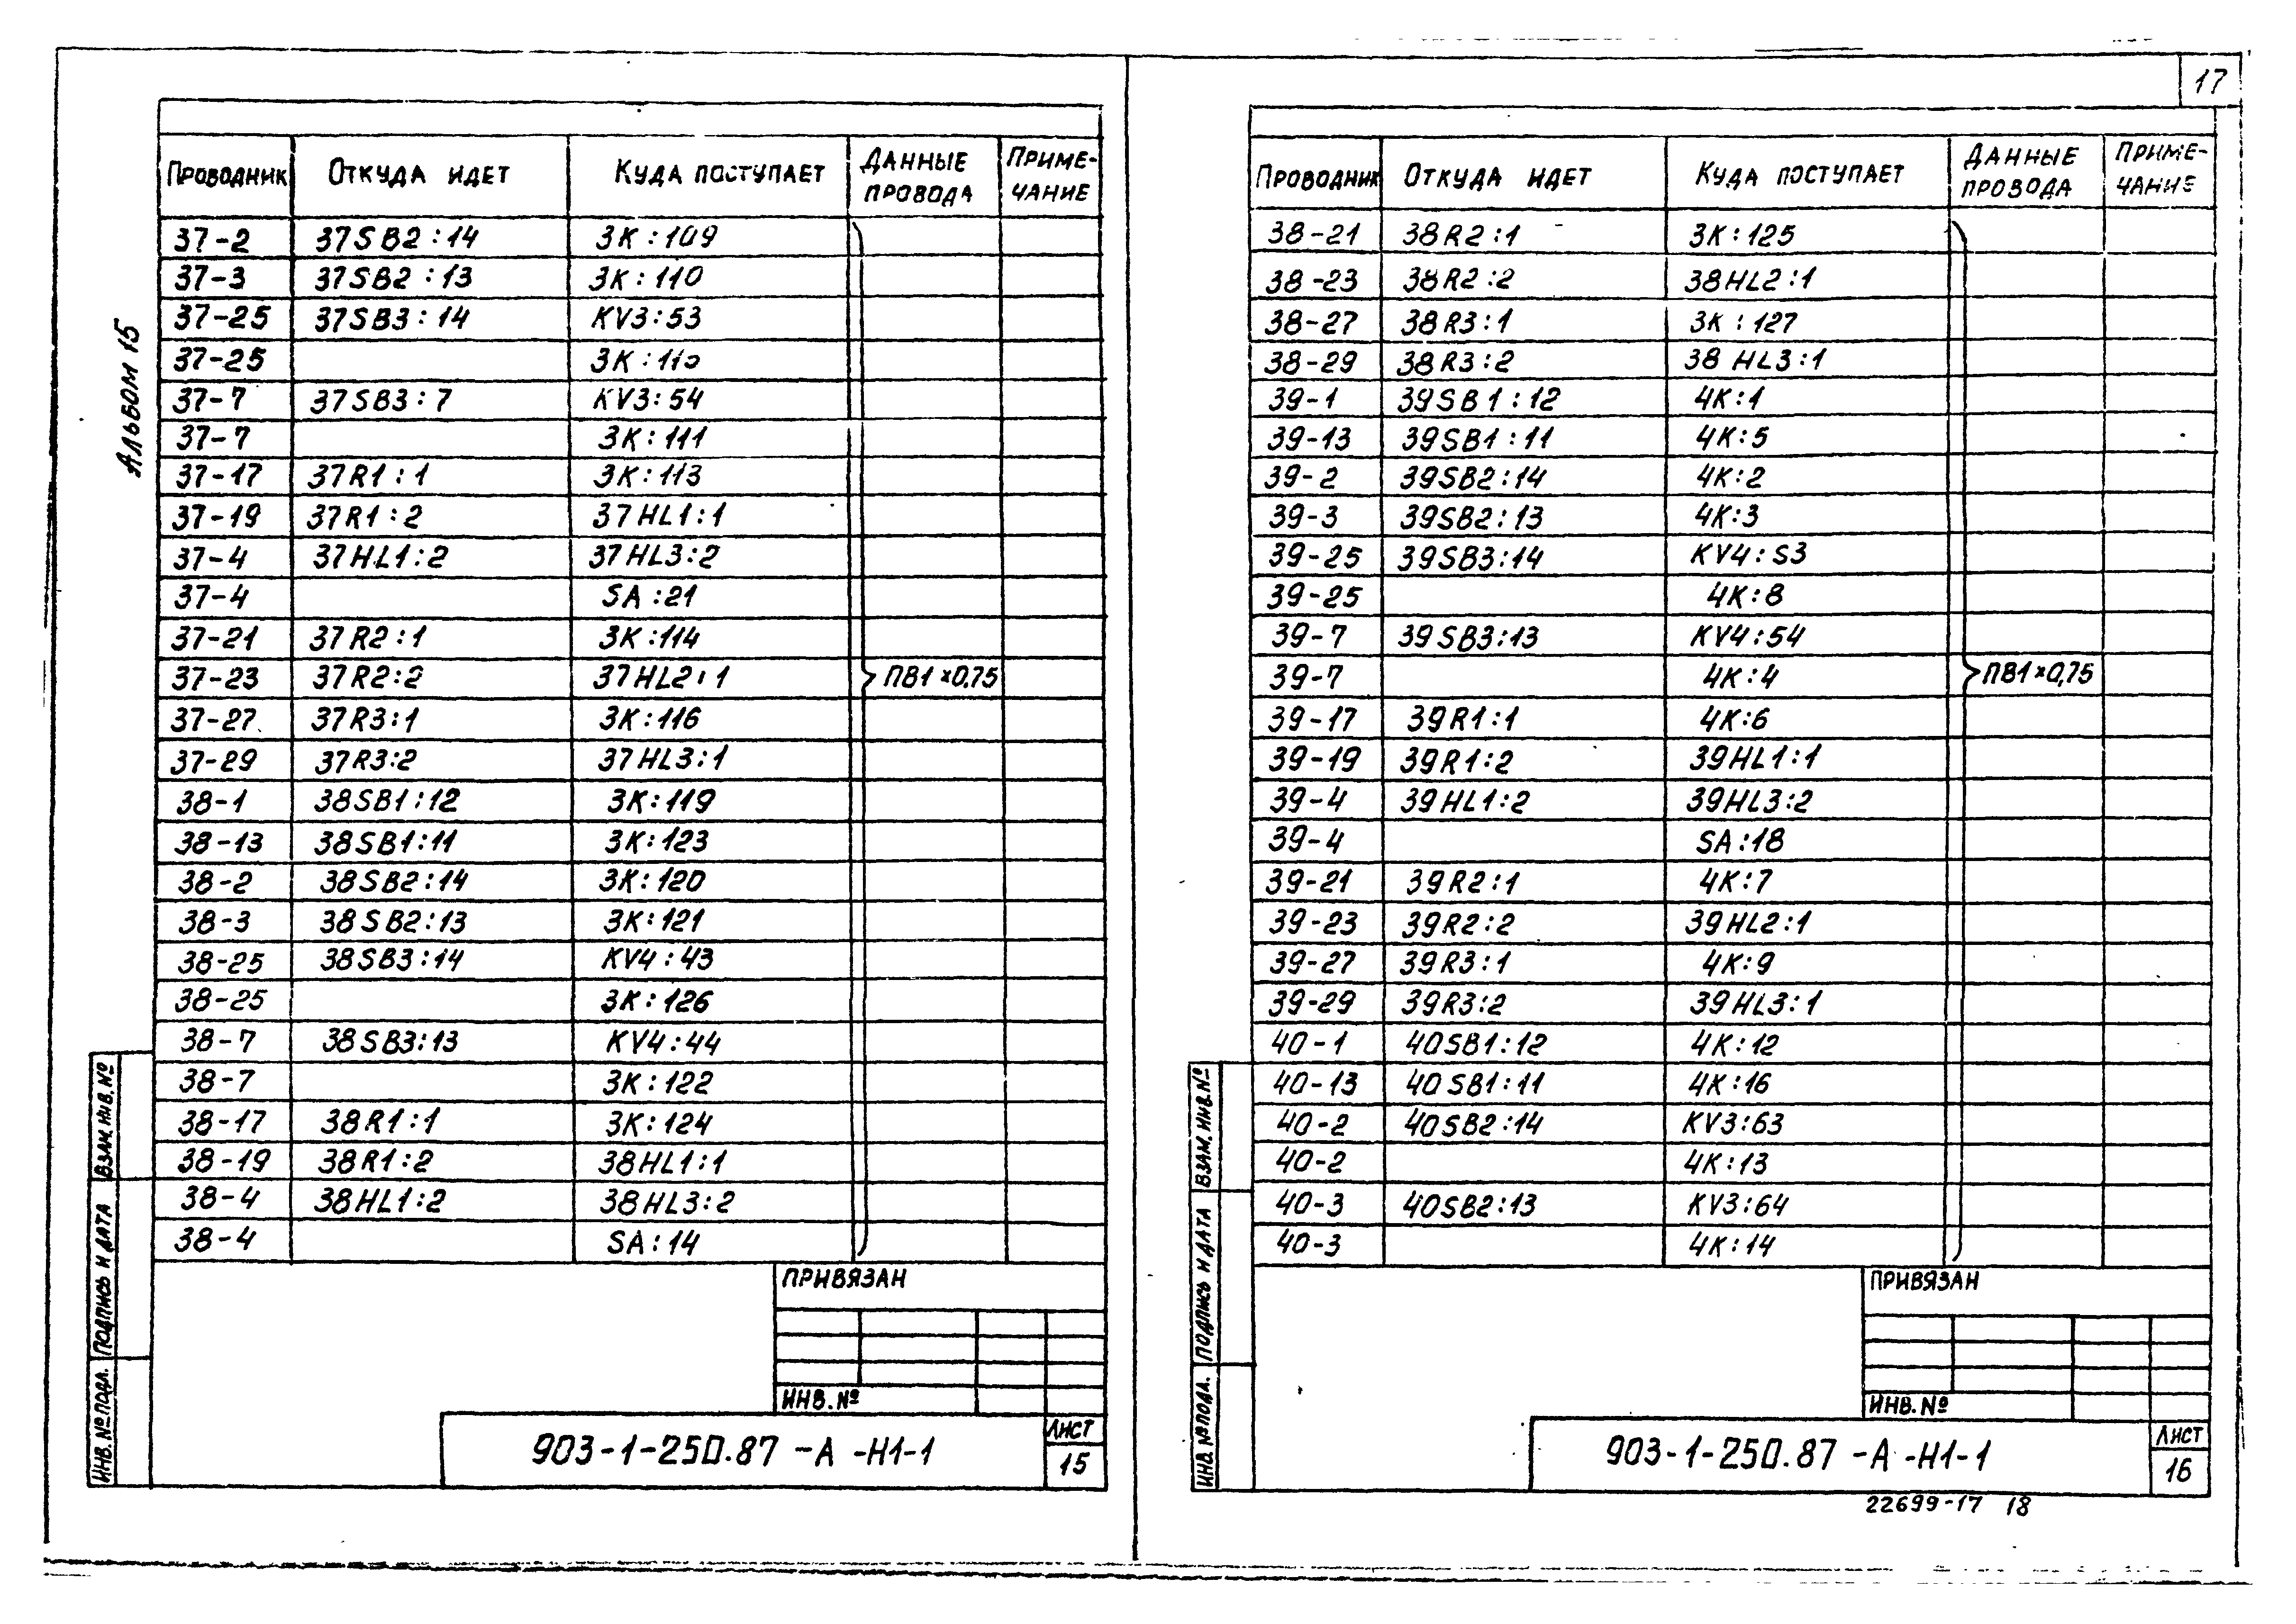 17
Альбом 15
Проводник Откуда идет Куда поступает Данные провода Приме-чание
37-2 37SB2:14 3К:109
37-3 37SB2:13 3К:110
37-25 37SB3:14 KV3:53
37-25
37-7 37SB3:7 KV3:54
37-7 3К:111
37-17 37R1:1 3К:113
37-19 37R1:2 37HL1:1
37-4 37HL1:2 37HL3:2
37-4 SA:21
37-21 37R2:1 3К:114
37-23 37R2:2 37HL2:1 ПВ1×0,75
37-27 37R3:1 3К:116
37-29 37R3:2 37HL3:1
38-1 38SB1:12 3К:119
38-13 38SB1:11 3К:123
38-2 38SB2:14 3К:120
38-3 38SB2:13 3К:121
38-25 38SB3:14 KV4:43
38-25 3К:126
38-7 38SB3:13 KV4:44
38-7 3К:122
38-17 38R1:1 3К:124
38-19 38R1:2 38HL1:1
38-4 38HL1:2 38HL3:2
38-4 SA:14
Привязан
Инв. №
903-1-250.87 -А -Н1-1
Лист
15
Взам. инв. №
Подпись и дата
Инв. № подл.
Проводник Откуда идет Куда поступает Данные провода Приме-чание
38-21 38R2:1 3К:125
38-23 38R2:2 38HL2:1
38-27 38R3:1 3К:127
38-29 38R3:2 38HL3:1
39-1 39SB1:12 4К:1
39-13 39SB1:11 4К:5
39-2 39SB2:14 4К:2
39-3 39SB2:13 4К:3
39-25 39SB3:14 KV4:S3
39-25 4К:8
39-7 39SB3:13 KV4:54
39-7 4К:4 ПВ1×0,75
39-17 39R1:1 4К:6
39-19 39R1:2 39HL1:1
39-4 39HL1:2 39HL3:2
39-4 SA:18
39-21 39R2:1 4К:7
39-23 39R2:2 39HL2:1
39-27 39R3:1 4К:9
39-29 39R3:2 39HL3:1
40-1 40SB1:12 4К:12
40-13 40SB1:11 4К:16
40-2 40SB2:14 KV3:63
40-2 4К:13
40-3 40SB2:13 KV3:64
40-3 4К:14
Привязан
Инв. №
903-1-250.87 -А -Н1-1
Лист
16
Взам. инв. №
Подпись и дата
Инв. № подл.
22699-17 18